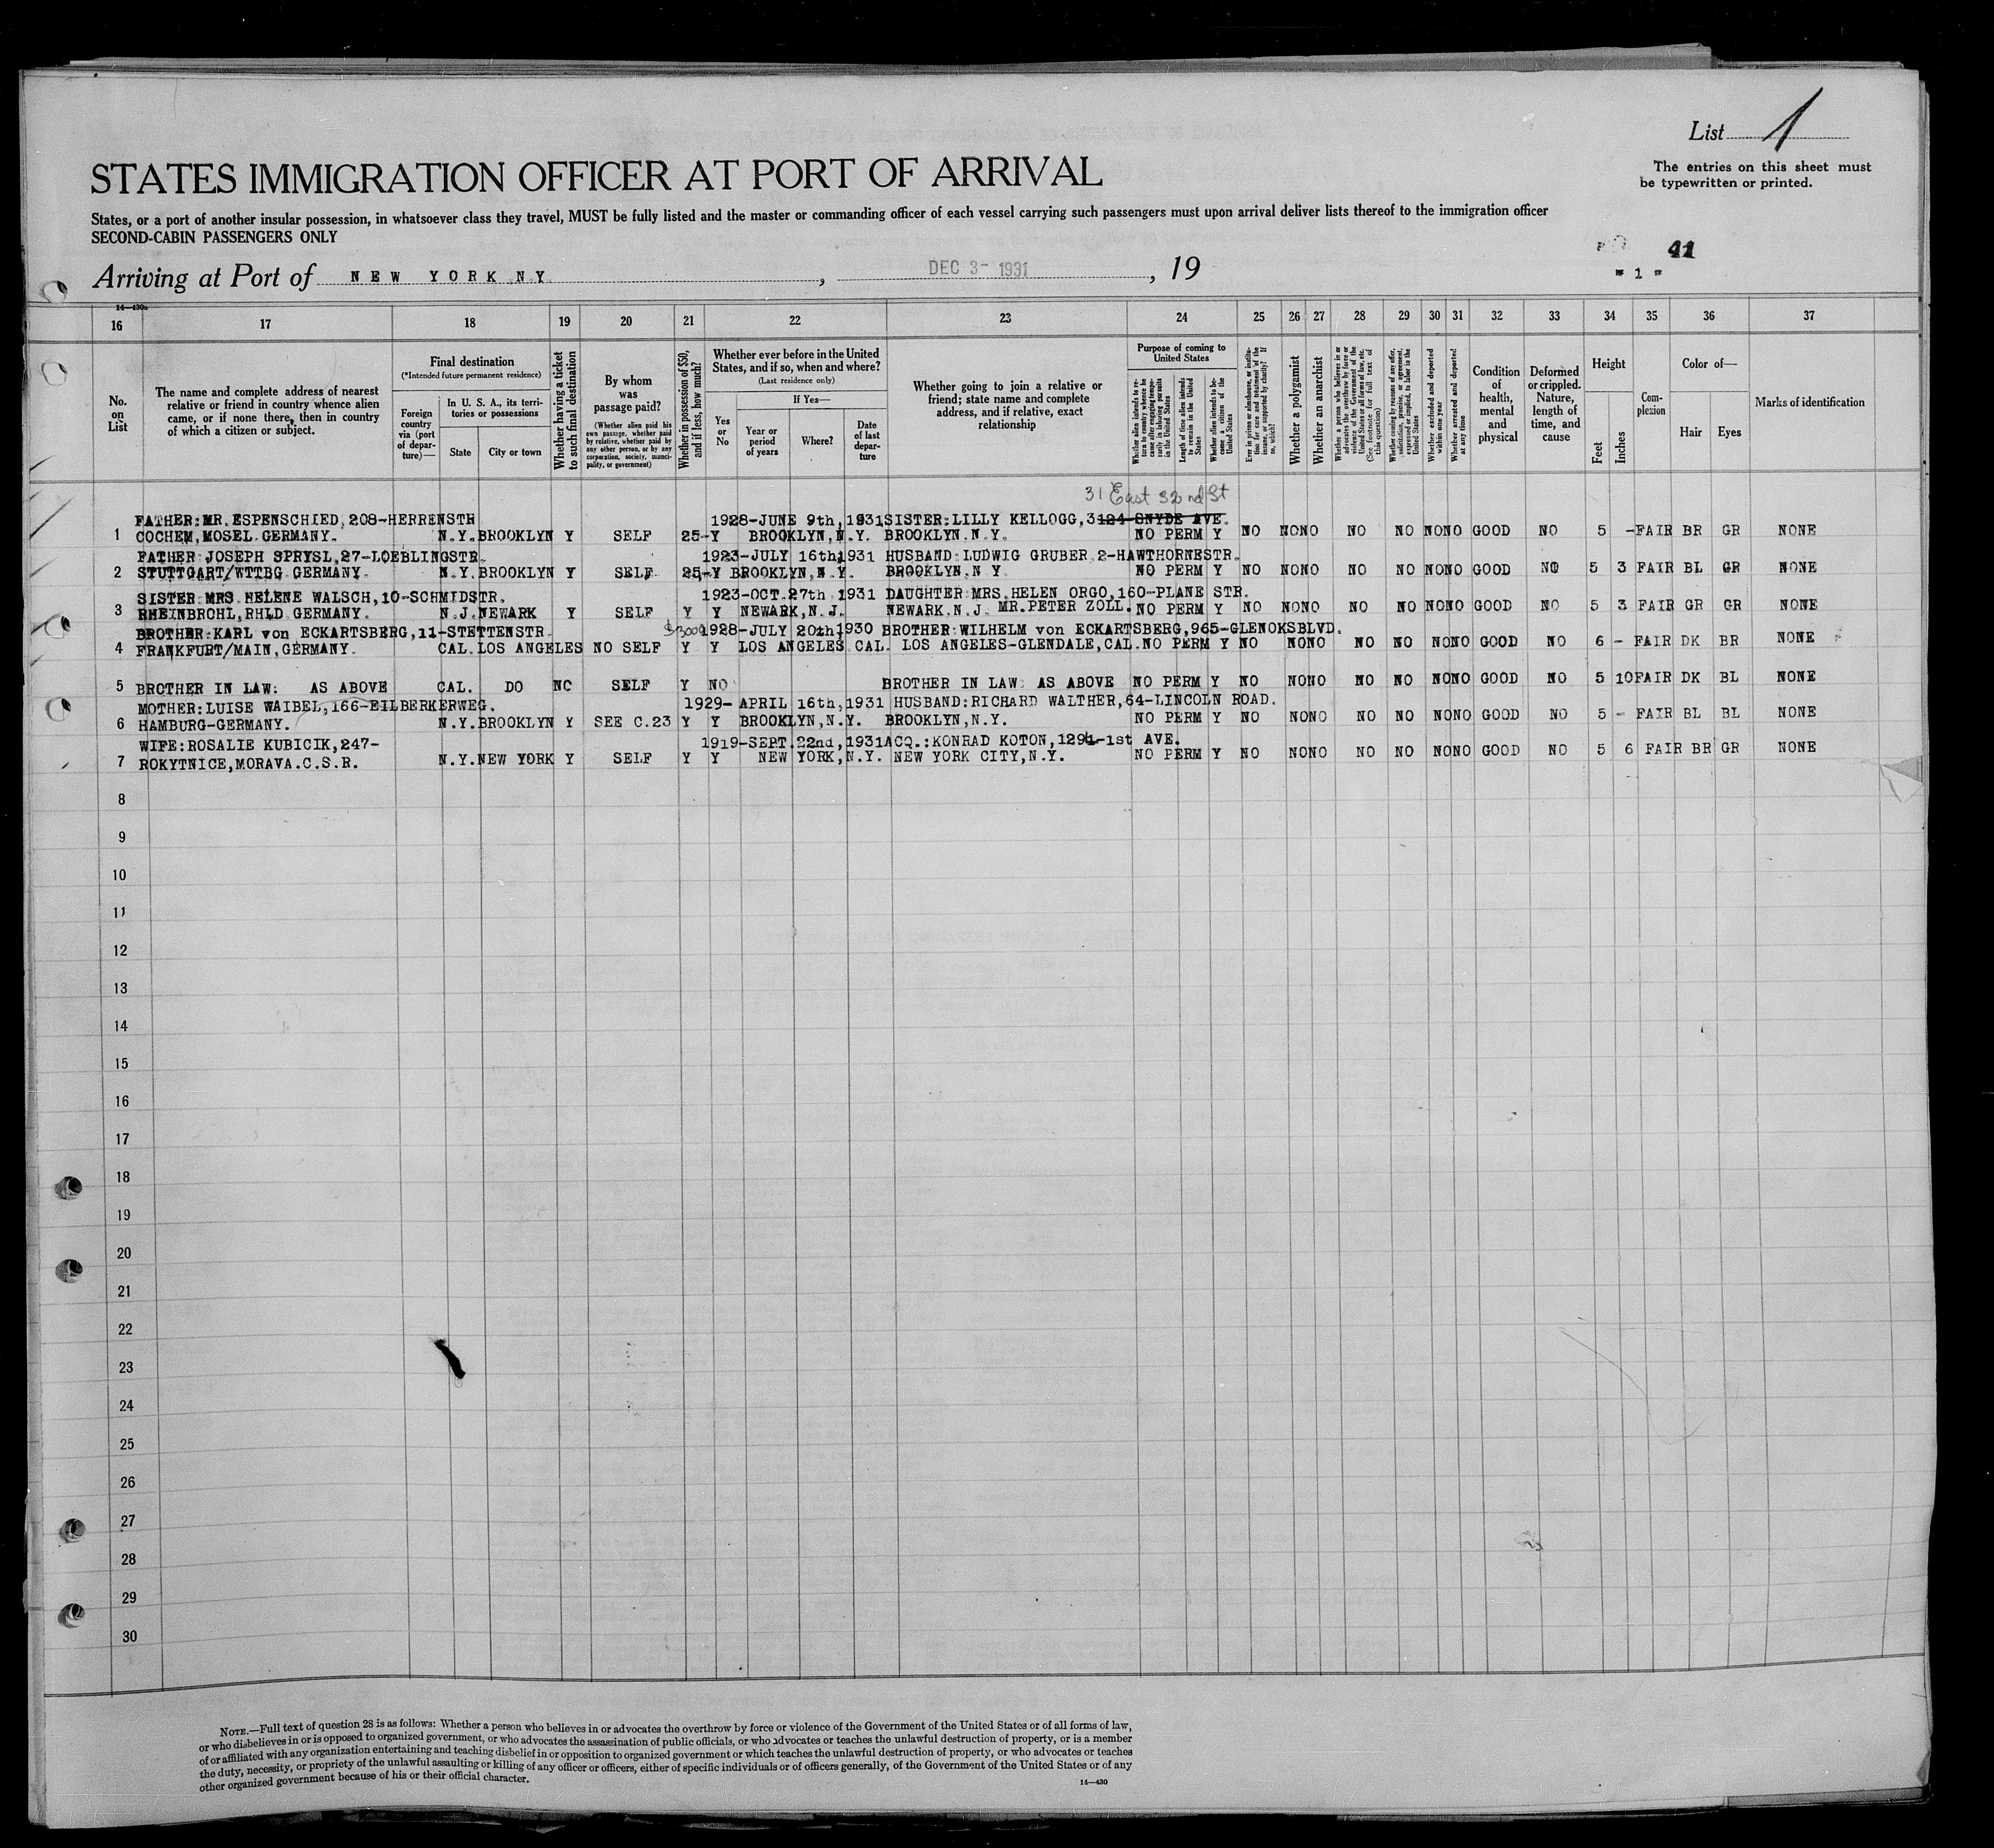 List 1
The entries on this sheet must
be typewritten or printed.
STATES IMMIGRATION OFFICER AT PORT OF ARRIVAL
States, or a port of another insular possession, in whatsoever class they travel, MUST be fully listed and the master or commanding officer of each vessel carrying such passengers must upon arrival deliver lists thereof to the immigration officer
SECOND-CABIN PASSENGERS ONLY
41
Arriving at Port of NEW YORK N.Y. , DEC 3- 1931 , 19
" 1 "
14—430a
16 17 18 19 20 21 22 23 24 25 26 27 28 29 30 31 32 33 34 35 36 37
No. on List
The name and complete address of nearest relative or friend in country whence alien came, or if none there, then in country of which a citizen or subject.
Final destination
(*Intended future permanent residence)
Foreign country via (port of departure)—
In U. S. A., its territories or possessions
State
City or town
Whether having a ticket to such final destination
By whom was passage paid?
(Whether alien paid his own passage, whether paid by relative, whether paid by any other person, or by any corporation, society, municipality, or government)
Whether in possession of $50, and if less, how much?
Whether ever before in the United States, and if so, when and where?
(Last residence only)
Yes or No
If Yes—
Year or period of years
Where?
Date of last departure
Whether going to join a relative or friend; state name and complete address, and if relative, exact relationship
Purpose of coming to United States
Whether alien intends to return to country whence he came after engaging temporarily in laboring pursuits in the United States
Length of time alien intends to remain in the United States
Whether alien intends to become a citizen of the United States
Ever in prison or almshouse, or institution for care and treatment of the insane, or supported by charity? If so, which?
Whether a polygamist
Whether an anarchist
Whether a person who believes in or advocates the overthrow by force or violence of the Government of the United States or all forms of law, etc. (See footnote for full text of this question)
Whether coming by reasons of any offer, solicitation, promise, or agreement, expressed or implied, to labor in the United States
Whether excluded and deported within one year
Whether arrested and deported at any time
Condition of health, mental and physical
Deformed or crippled. Nature, length of time, and cause
Height
Feet
Inches
Complexion
Color of—
Hair
Eyes
Marks of identification
31 East 32nd St
FATHER:MR.ESPENSCHIED,208-HERRENSTR 1928-JUNE 9th,1931 SISTER:LILLY KELLOGG,3124 SNYDE AVE.
1 COCHEM,MOSEL.GERMANY. N.Y.BROOKLYN Y SELF 25- Y BROOKLYN,N.Y. BROOKLYN.N.Y. NO PERM Y NO NO NO NO NO NO NO GOOD NO 5 - FAIR BR GR NONE
FATHER:JOSEPH SPRYSL,27-LOEBLINGSTR. 1923-JULY 16th,1931 HUSBAND:LUDWIG GRUBER,2-HAWTHORNESTR.
2 STUTTGART/WTTBG.GERMANY. N.Y.BROOKLYN Y SELF 25- Y BROOKLYN,N.Y. BROOKLYN.N.Y NO PERM Y NO NO NO NO NO NO NO GOOD NO 5 3 FAIR BL GR NONE
SISTER:MRS.HELENE WALSCH,10-SCHMIDSTR. 1923-OCT.27th 1931 DAUGHTER:MRS.HELEN ORGO,160-PLANE STR.
3 RHEINBROHL,RHLD.GERMANY. N.J.NEWARK Y SELF Y Y NEWARK,N.J. NEWARK.N.J. MR.PETER ZOLL. NO PERM Y NO NO NO NO NO NO NO GOOD NO 5 3 FAIR GR GR NONE
BROTHER:KARL von ECKARTSBERG,11-STETTENSTR. $3000 1928-JULY 20th,1930 BROTHER:WILHELM von ECKARTSBERG,965-GLENOKSBLVD.
4 FRANKFURT/MAIN,GERMANY. CAL.LOS ANGELES NO SELF Y Y LOS ANGELES CAL. LOS ANGELES-GLENDALE,CAL. NO PERM Y NO NO NO NO NO NO NO GOOD NO 6 - FAIR DK BR NONE
5 BROTHER IN LAW: AS ABOVE CAL. DO NO SELF Y NO BROTHER IN LAW: AS ABOVE NO PERM Y NO NO NO NO NO NO NO GOOD NO 5 10 FAIR DK BL NONE
MOTHER:LUISE WAIBEL,166-EILBERKERWEG. 1929- APRIL 16th,1931 HUSBAND:RICHARD WALTHER,64-LINCOLN ROAD.
6 HAMBURG-GERMANY. N.Y.BROOKLYN Y SEE C.23 Y Y BROOKLYN,N.Y. BROOKLYN,N.Y. NO PERM Y NO NO NO NO NO NO NO GOOD NO 5 - FAIR BL BL NONE
WIFE:ROSALIE KUBICIK,247- 1919-SEPT.22nd,1931 ACQ.:KONRAD KOTON,1291-1st AVE.
7 ROKYTNICE,MORAVA.C.S.R. N.Y.NEW YORK Y SELF Y Y NEW YORK,N.Y. NEW YORK CITY,N.Y. NO PERM Y NO NO NO NO NO NO NO GOOD NO 5 6 FAIR BR GR NONE
8
9
10
11
12
13
14
15
16
17
18
19
20
21
22
23
24
25
26
27
28
29
30
NOTE.—Full text of question 28 is as follows: Whether a person who believes in or advocates the overthrow by force or violence of the Government of the United States or of all forms of law,
or who disbelieves in or is opposed to organized government, or who advocates the assassination of public officials, or who advocates or teaches the unlawful destruction of property, or is a member
of or affiliated with any organization entertaining and teaching disbelief in or opposition to organized government or which teaches the unlawful destruction of property, or who advocates or teaches
the duty, necessity, or propriety of the unlawful assaulting or killing of any officer or officers, either of specific individuals or of officers generally, of the Government of the United States or of any
other organized government because of his or their official character.
14—430